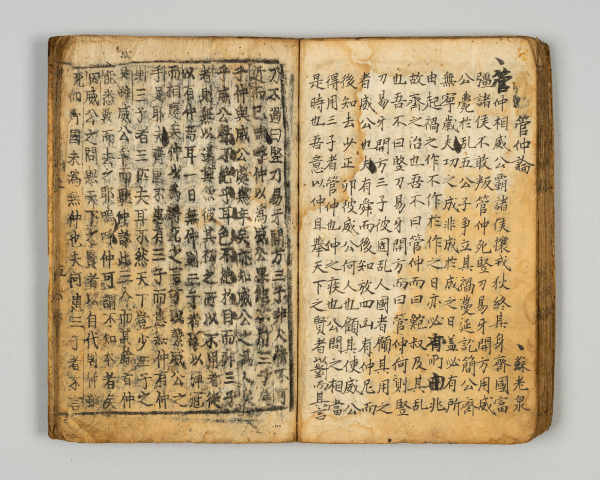 管仲論
蘇老泉
管仲相威公霸諸侯攘戎狄終其身齊國富
彊諸侯不敢叛管仲死竪刀易牙開方用威
公薨於乱五公子爭立其禍蔓延訖簡公齊
無寧歲夫功之成非成於成之日盖必有所
由起禍之作不作於作之日亦必有所由兆
故齊之治也吾不曰管仲而曰鮑叔及其乱
也吾不曰竪刀易牙開方而曰管仲何則竪
刀易牙開方三子彼固乱人國者顧其用之
者威公也夫有舜而後知放四凶有仲尼而
後知去少正卯彼威公何人也顧其使威公
得用三子者管仲也仲之疾也公問之相當
是時也吾意以仲且舉天下之賢者以對而其言
乃不過曰竪刀易牙開方三子非人情不可
近而已嗚呼仲以為威公果能不用三子矣
乎仲與威公處幾年矣亦知威公之為人矣
乎威公聲不絶乎耳色不絶於目而非三子
者則無以遂其欲彼其初之所以不用者徒
以有仲焉耳一日無仲則三子者可以彈冠
而相慶矣仲以為將死之言可以縶威公之
手足耶夫齊國不患有三子而患無仲有仲
則三子者三匹夫耳不然天下豈少三子之
徒雖威公幸而聽仲誅此三人而其餘者仲
能悉數而去之耶嗚呼仲可謂不知本者矣
因威公之問舉天下之賢者以自代則仲雖
死而齊國未為無仲也夫何患三子者不言